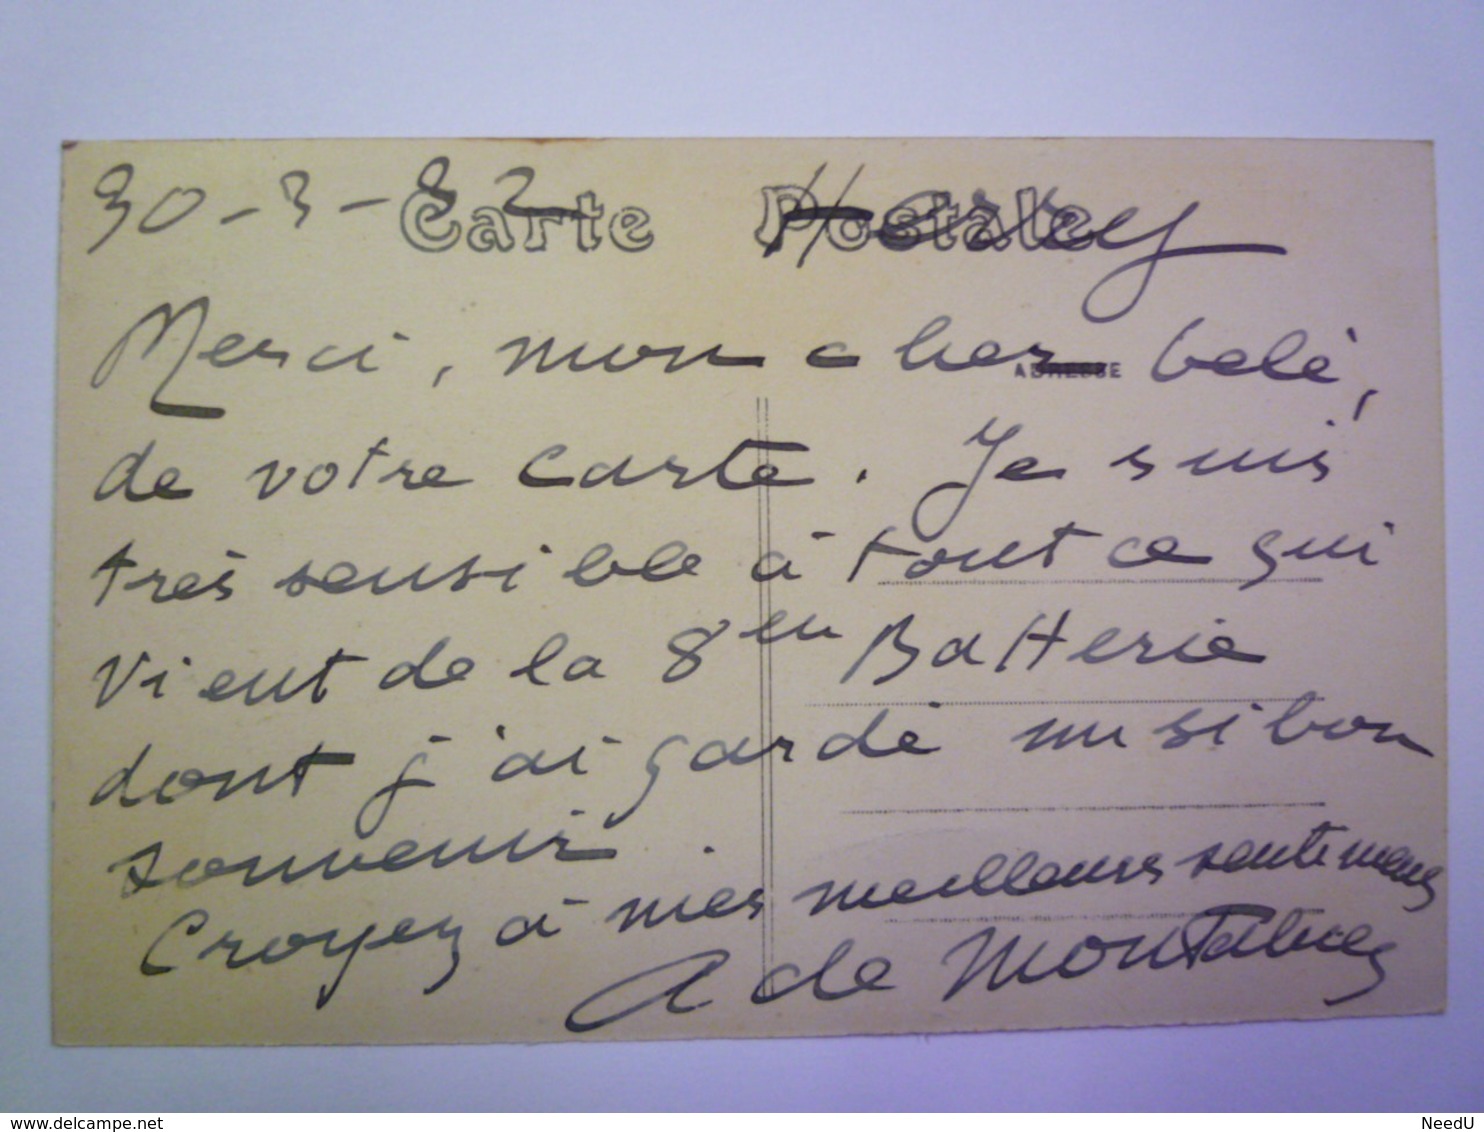 30-3-82 Carte Postale
Merci, mon cher belé,
ADRESSE
de votre carte. Je suis
très sensible à tout ce qui
vient de la 8en Batterie
dont j'ai gardé un si bon
souvenir.
Croyez à mes meilleurs sentiments
A de
www.delcampe.net
NeedU